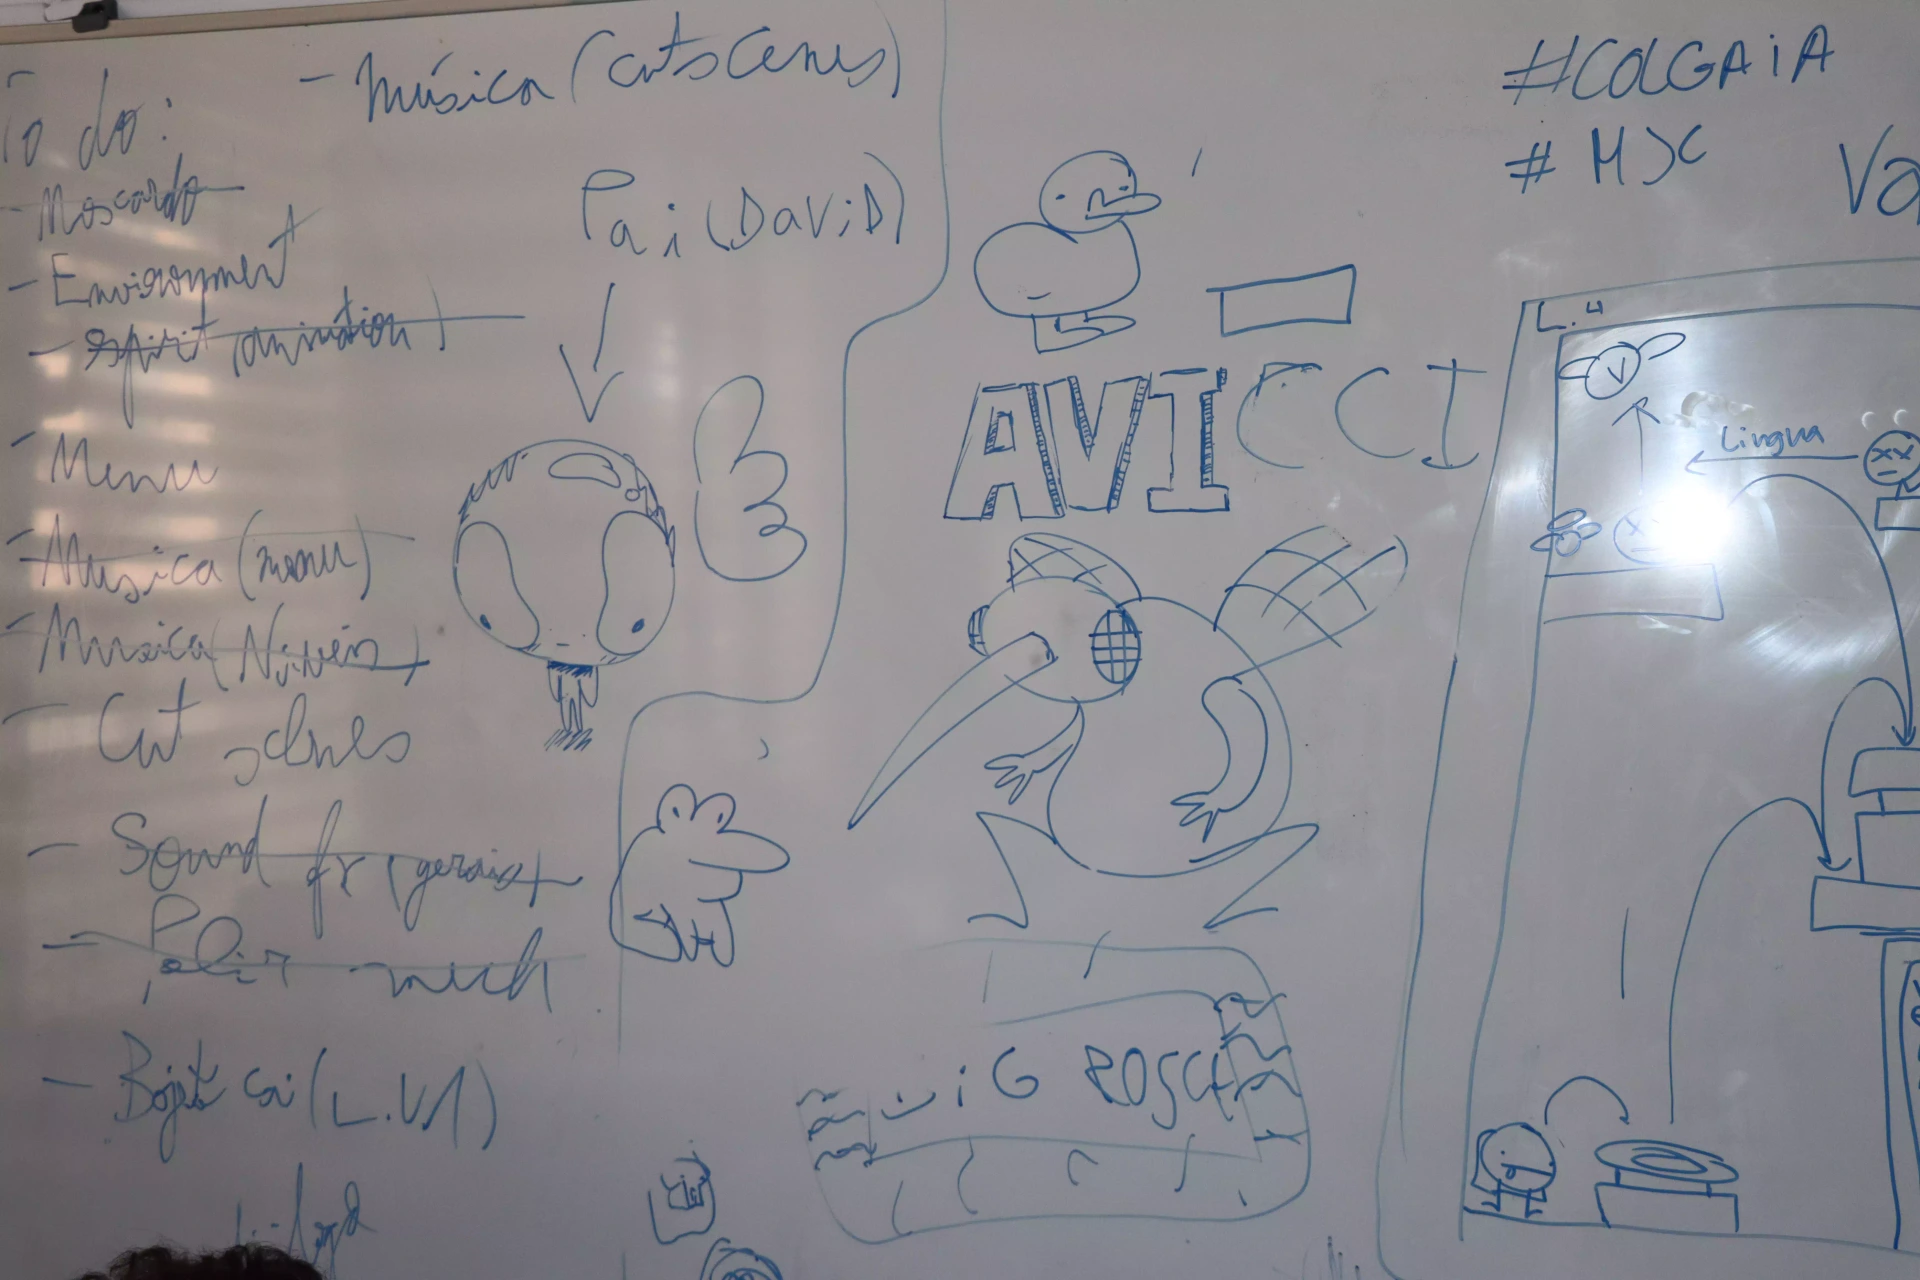 To do:
- Moscardo
- Environment
- Spirit (animation)
- Menu
- Musica (menu)
- Musica (Niveis)
- Cut scenes
- Sound fx (gerais)
- Polir mech
(L.V1)
- Música (cutscenes)
Pai (DaViD)
AVICCI
#COLGAiA
# MJC
L.4
V
Lingua